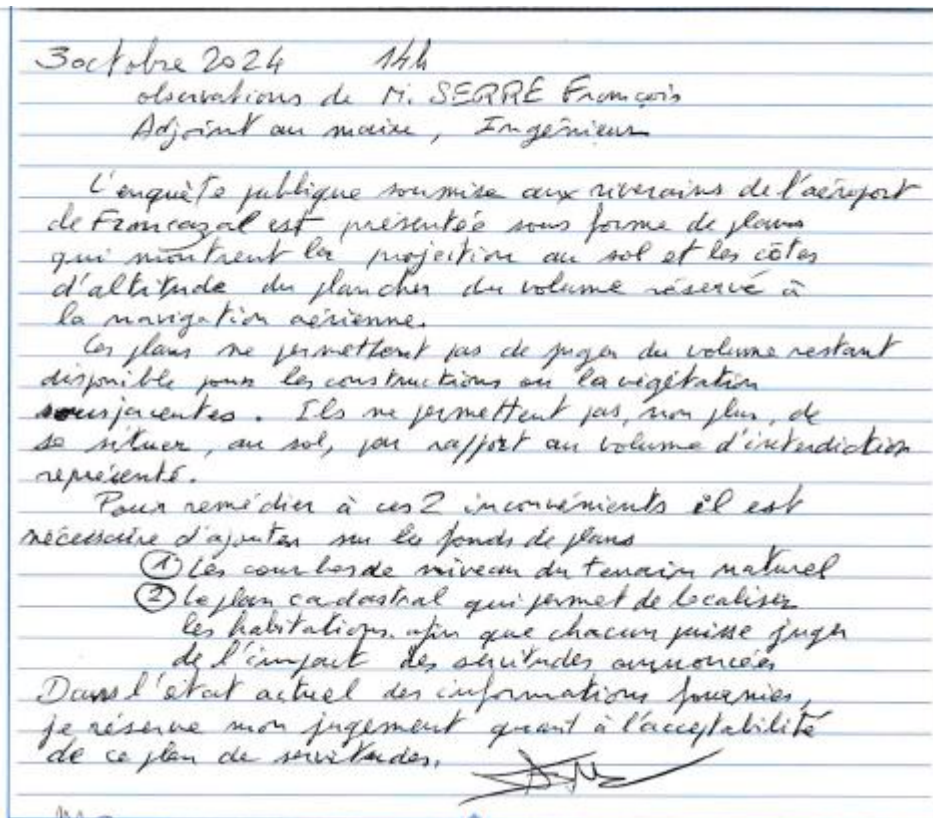 3 octobre 2024 14h
observations de M. SERRE François
Adjoint au maire, Ingénieur
L'enquète publique soumise aux riverains de l'aéroport
de Francazal est présentée sous forme de plans
qui montrent la projection au sol et les côtes
d'altitude du plancher du volume réservé à
la navigation aérienne.
Ces plans ne permettent pas de juger du volume restant
disponible pour les constructions ou la végétation
sousjacentes. Ils ne permettent pas, non plus, de
se situer, au sol, par rapport au volume d'interdiction
représenté.
Pour remédier à ces 2 inconvénients il est
nécessaire d'ajouter sur les fonds de plans
① Les courbes de niveau du terrain naturel
② Le plan cadastral qui permet de localiser
les habitations. afin que chacun puisse juger
de l'impact des servitudes annoncées
Dans l'état actuel des informations fournies,
je réserve mon jugement quant à l'acceptabilité
de ce plan de servitudes.